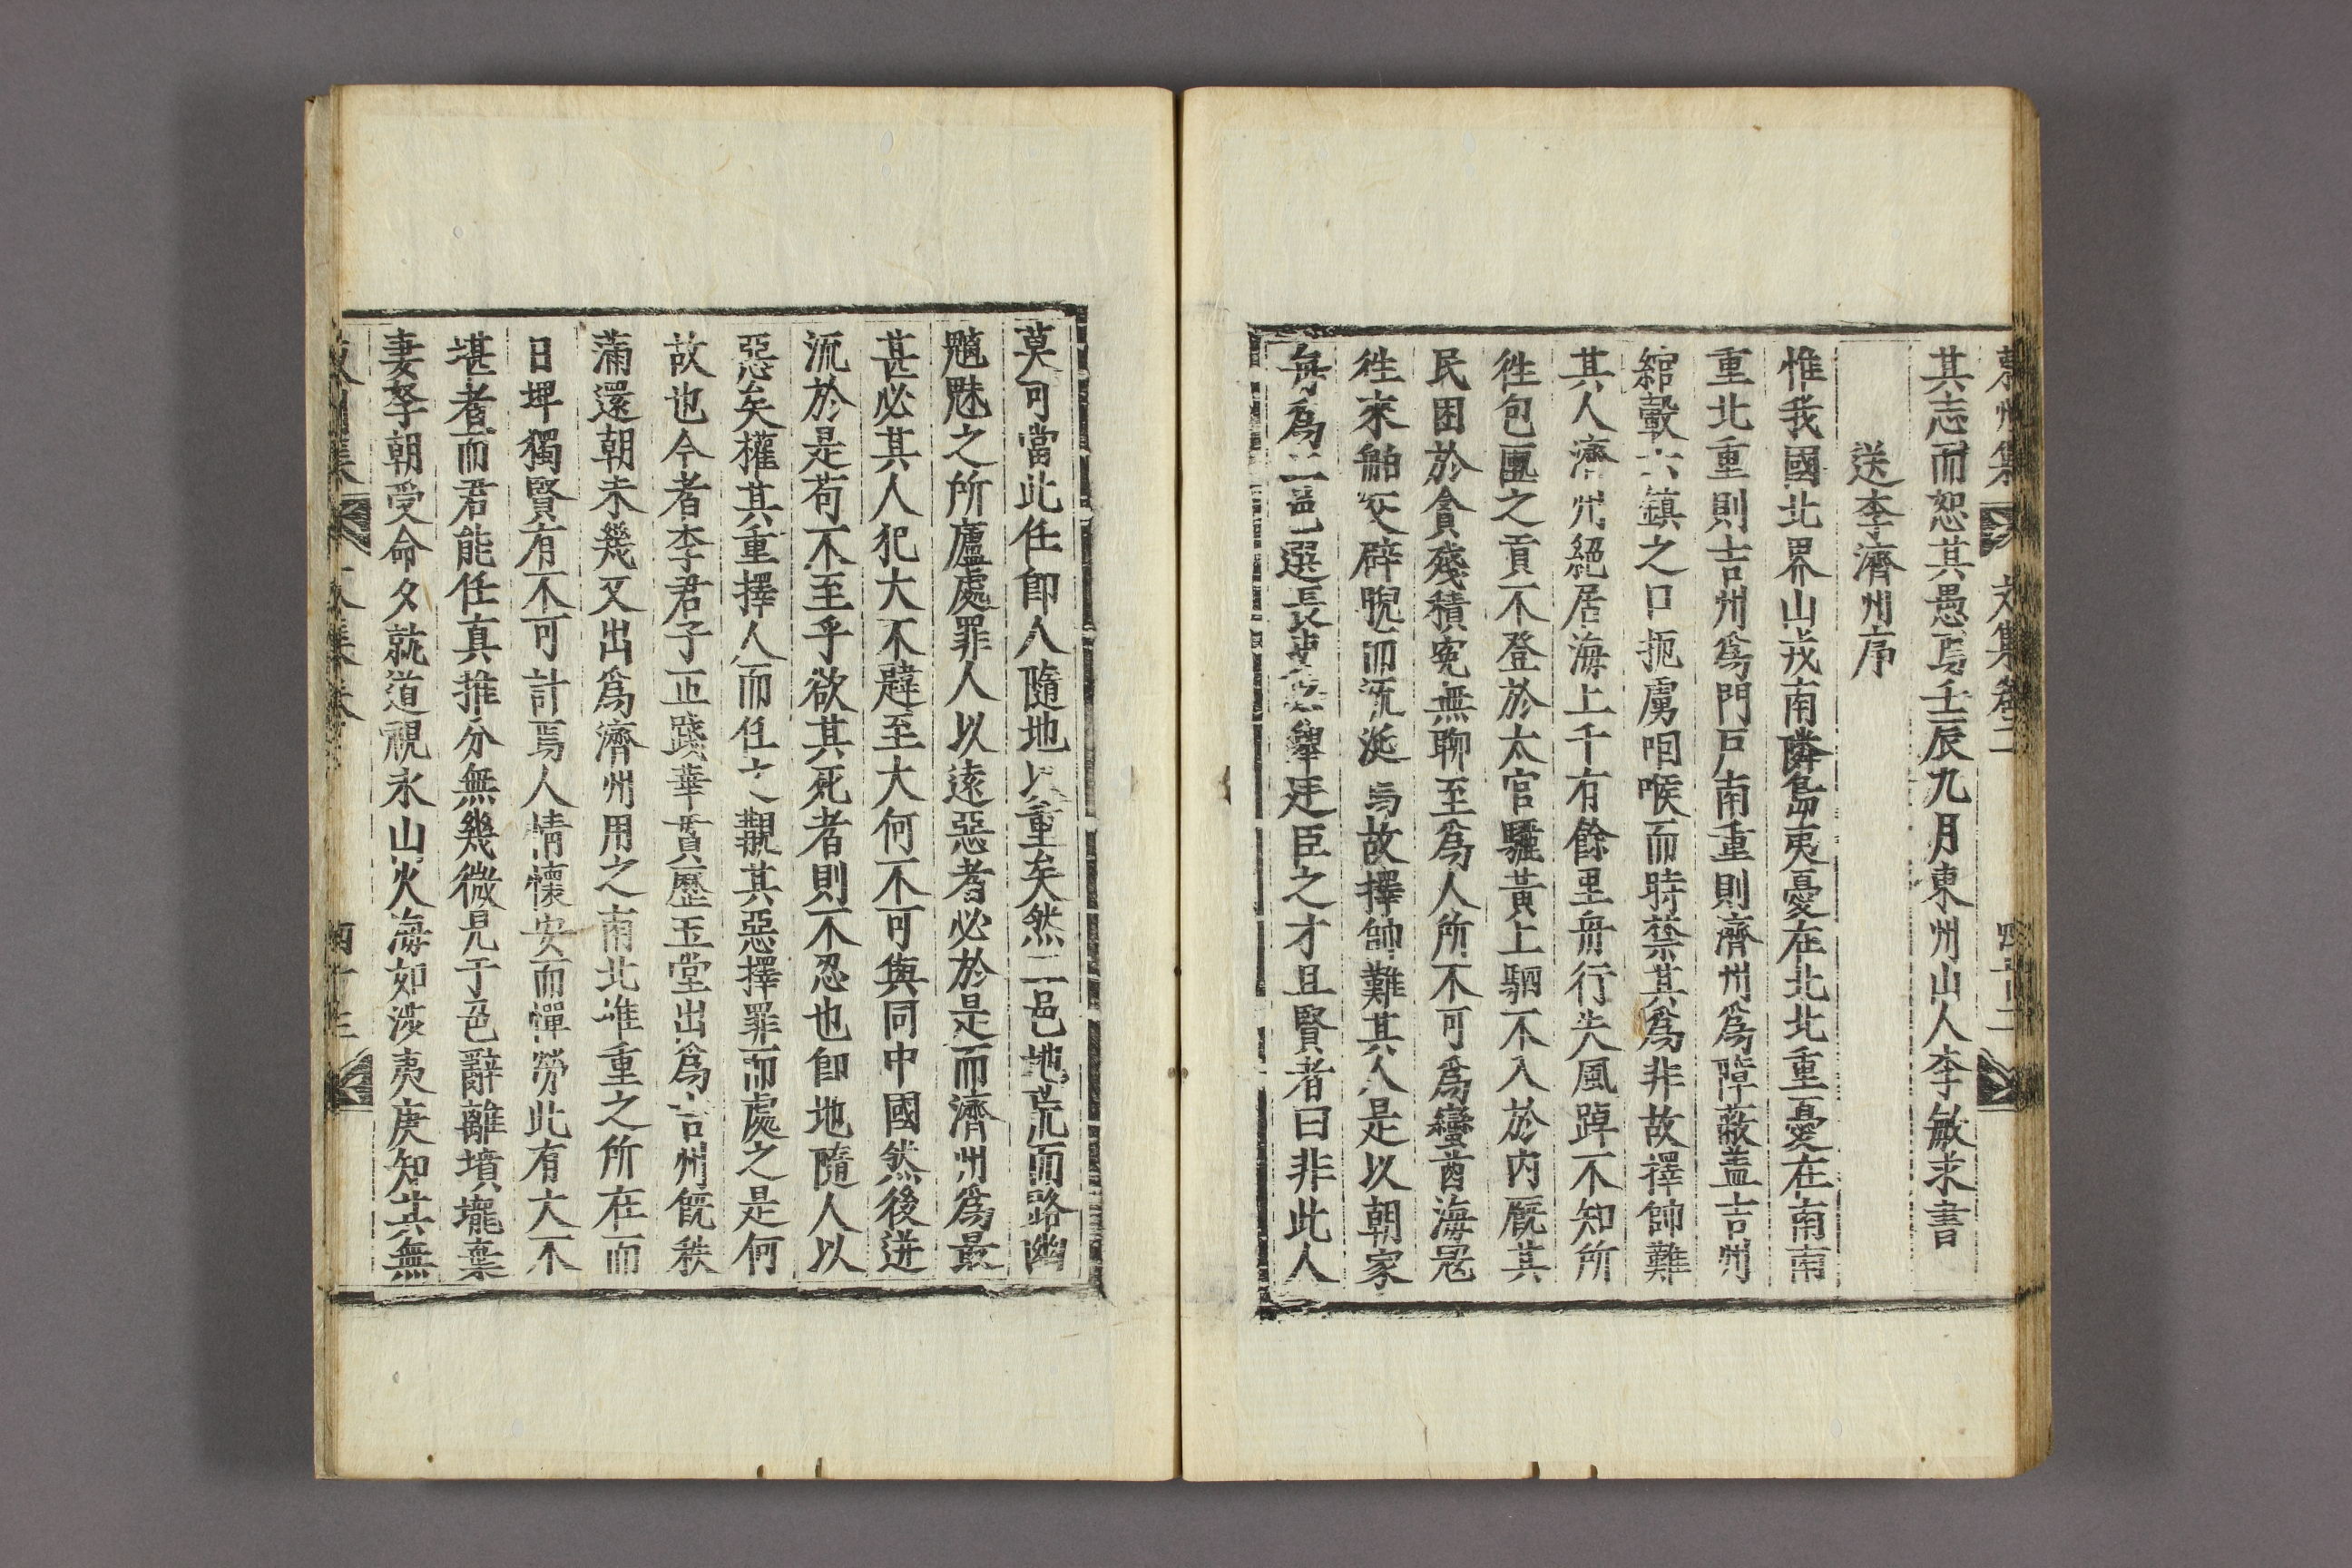 東州集 文集卷二 四十二
其志而恕其愚焉壬辰九月東州山人李敏求書
送李濟州序
惟我國北界山戎南隣島夷憂在北北重憂在南南
重北重則吉州爲門戶南重則濟州爲障蔽盖吉州
綰轂六鎮之口扼虜咽喉而時禁其爲非故擇帥難
其人濟州絕居海上千有餘里舟行失風踔不知所
徃包匭之貢不登於太官驪黃上駟不入於内廐其
民困於貪殘積寃無聊至爲人所不可爲蠻酋海寇
徃來舶交睥睨而流涎焉故擇帥難其人是以朝家
每爲二邑選長吏 舉廷臣之才且賢者曰非此人
莫可當此任卽人隨地以重矣然二邑地荒而路幽
魑魅之所廬處罪人以遠惡者必於是而濟州爲最
甚必其人犯大不韙至大何不可與同中國然後迸
流於是苟不至乎欲其死者則不忍也卽地隨人以
惡矣權其重擇人而任之觀其惡擇罪而處之是何
故也今者李君子正踐華貫歷玉堂出爲吉州旣秩
滿還朝未幾又出爲濟州用之南北唯重之所在而
日埤獨賢有不可計焉人情懷安而憚勞此有大不
堪者而君能任真推分無幾微見于色辭離墳壠棄
妻孥朝受命夕就道視氷山火海如涉夷庚知其無